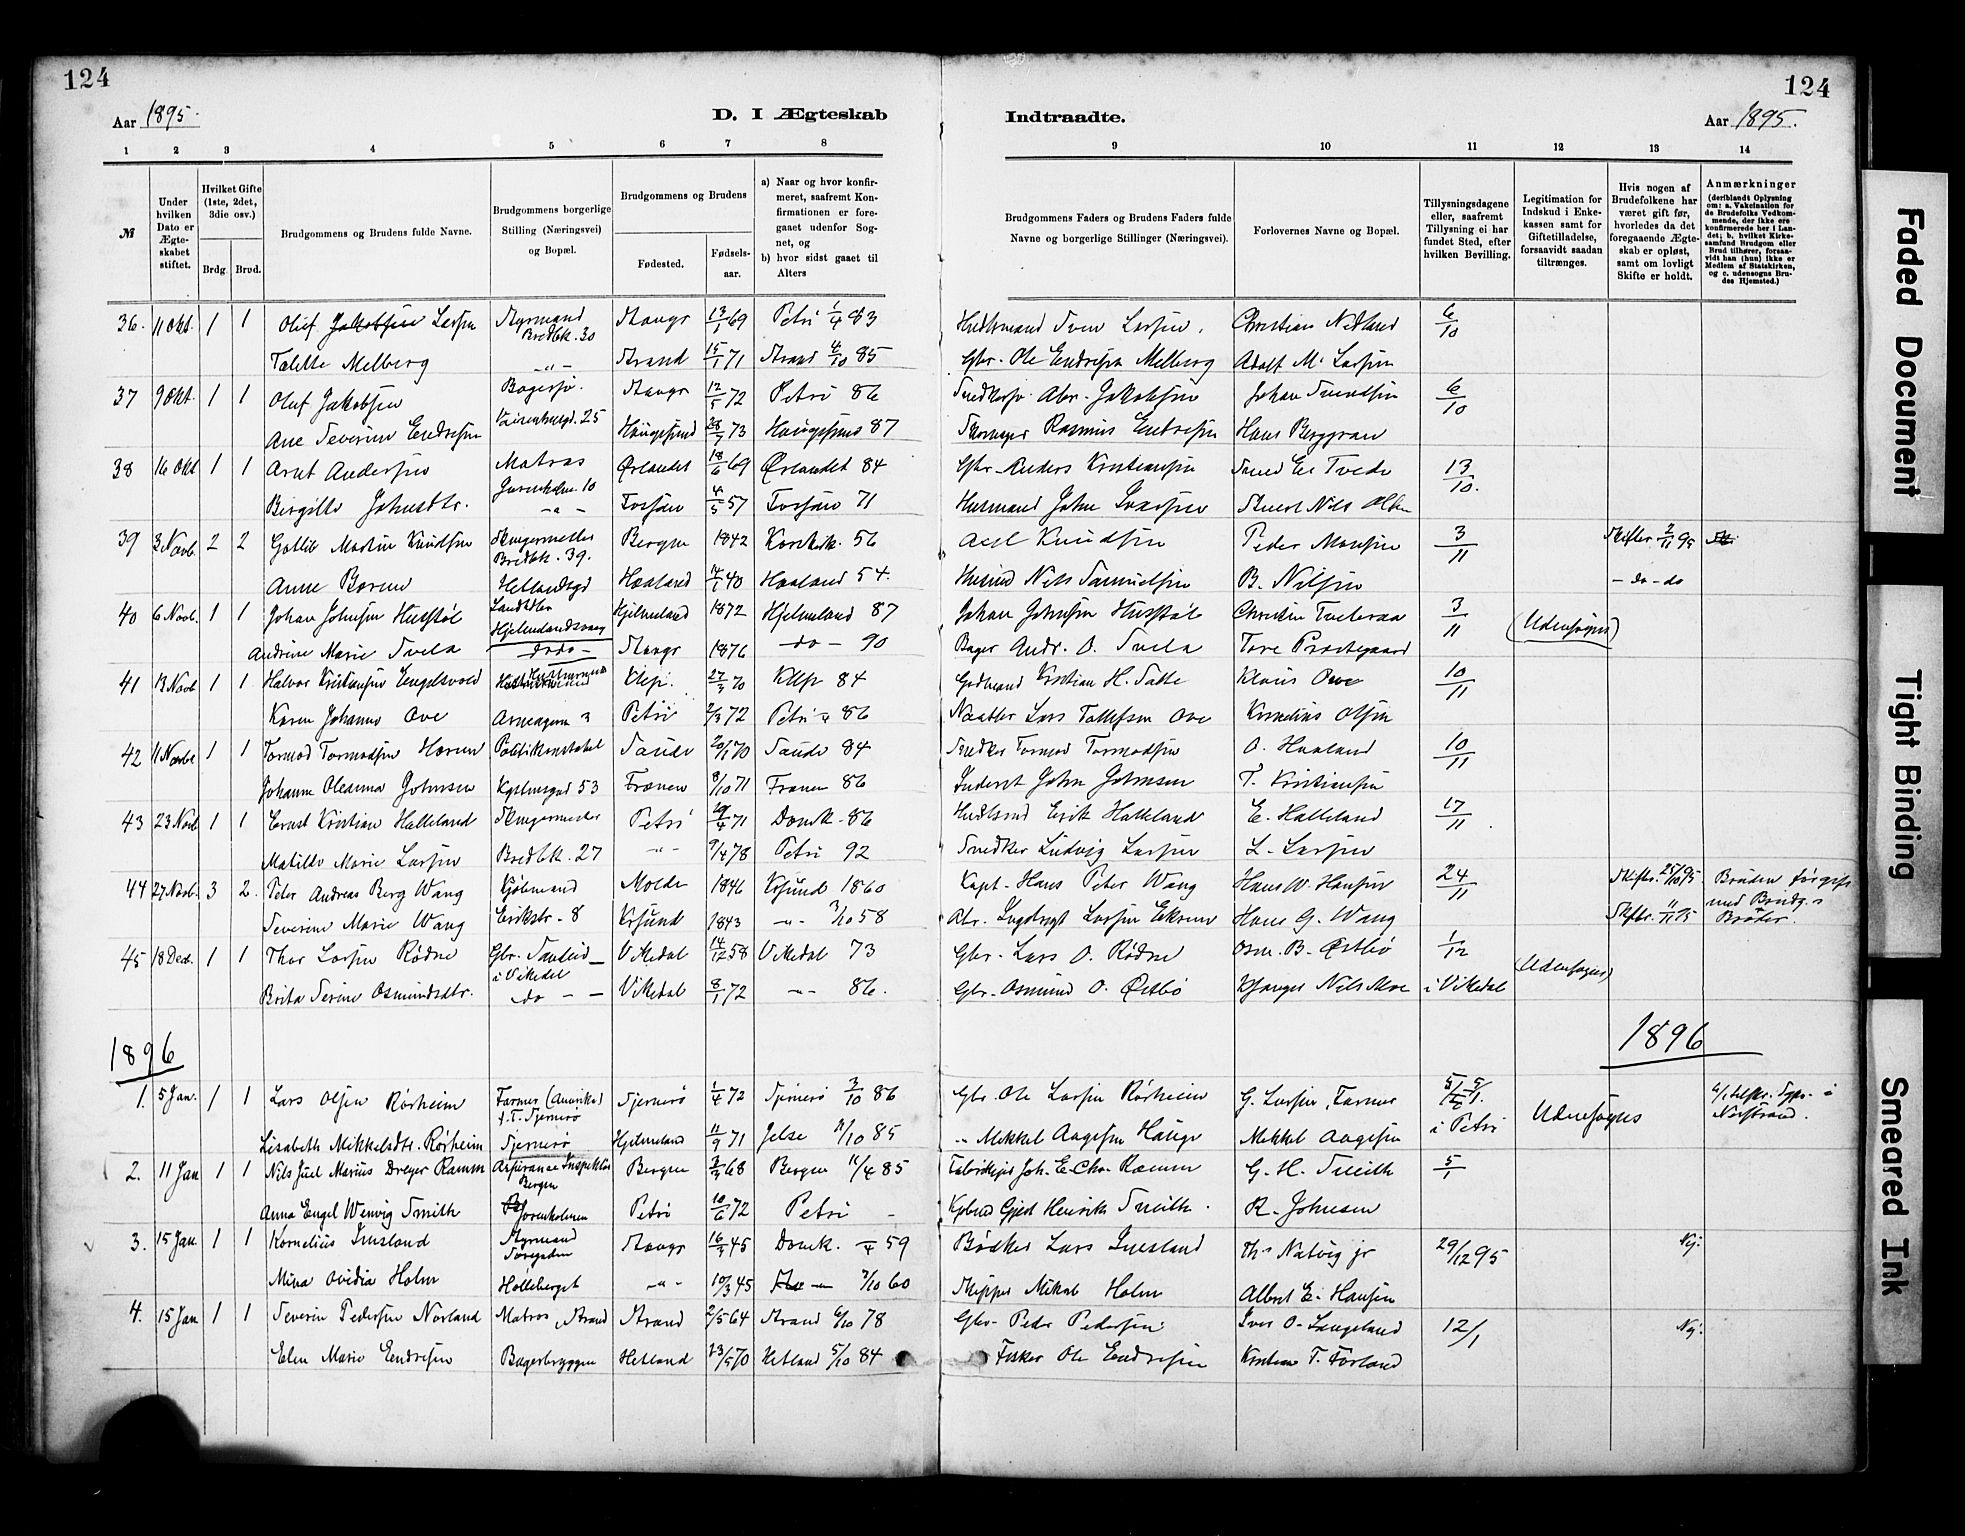 124
124
Aar 1895.
D. I Ægteskab
Indtraadte.
Aar 1895.
1 2 3 4 5 6 7 8
9 10 11 12 13 14
№
Under hvilken Dato er Ægteskabet stiftet.
Hvilket Gifte (1ste, 2det, 3die osv.)
Brdg. Brud.
Brudgommens og Brudens fulde Navne.
Brudgommens borgerlige Stilling (Næringsvei) og Bopæl.
Brudgommens og Brudens
Fødested.
Fødselsaar.
a) Naar og hvor konfirmeret, saafremt Konfirmationen er foregaaet udenfor Sognet, og
b) hvor sidst gaaet til Alters
Brudgommens Faders og Brudens Faders fulde Navne og borgerlige Stillinger (Næringsvei).
Forlovernes Navne og Bopæl.
Tillysningsdagene eller, saafremt Tillysning ei har fundet Sted, efter hvilken Bevilling.
Legitimation for Indskud i Enkekassen samt for Giftetilladelse, forsaavidt saadan tiltrænges.
Hvis nogen af Brudefolkene har været gift før, hvorledes da det foregaaende Ægteskab er opløst, samt om lovligt Skifte er holdt.
Anmærkninger
(deriblandt Oplysning om: a. Vakcination for de Brudefolks Vedkommende, der ikke ere konfirmerede her i Landet; b. hvilket Kirkesamfund Brudgom eller Brud tilhører, forsaavidt han (hun) ikke er Medlem af Statskirken, og c. udensogns Brudes Hjemsted.)
36. 11 Okt. 1 1 Oluf Jakobsen Larsen Styrmand Bredbk. 30 Stavgr 13/1 69 Petri 1/4 83 Sven Larsen. Christian Nedland 6/10
Talette Melberg -"- Strand 15/1 71 Strand 4/10 85 Gbr. Ole Endresen Melberg Adolf M. Larsen
37 9 Okt. 1 1 Oluf Jakobsen Bagersv. Stavgr 12/5 72 Petri 86 Abr. Jakobsen Johan Svendsen 6/10
Ane Severine Endresen 25 Haugesund 28/7 73 Haugesund 87 Rasmus Endresen Hans Berggran
38 16 Okt 1 1 Arnt Andersen Matros Ørlandet 18/6 69 Ørlandet 84 Gbr. Anders Kristiansen Tvede 13/10.
Birgitte Johnsdtr. Jorenholm. 10 -"- Fossan 4/5 57 Fossan 71 Husmand John Nils Olsen
39 3 Novb. 2 2 Gotlib Martin Knudsen Skngermester Bredbk. 39. Bergen 1842 Korskirk. 56 Axel Knudsen Peder Monsen 3/11 Skifter. 2/11 95
Anne Boren Hetlandsgd Haaland 14/1 40 Haaland 54. Nils Samuelsen B. Nilsen - do - do
40 6 Novb. 1 1 Johan Johnsen Husstøl Landhdler Hjelmelandsvaag Hjelmeland 1872 Hjelmeland 87 Johan Johnsen Husstøl Christen Tveteraa 3/11 (Udensogns)
Andrine Marie Tvela do do - Stavgr 1876 - do - 90 Bager Andr. O. Tvela Tore Prestegaard
41 13 Novb 1 1 Halvor Kristiansen Engelsvold Klep. 27/3 70 Klep 84 Kristian H. Salte Klaus Ove 10/11
Karen Johanna Ove 3 Petri 2/3 72 Petri 86 Lars Tollefsen Ove Kornelius Olsen
42 11 Novbr 1 1 Tormod Tormodsen Politikonstabel Saude 20/1 70 Saude 84 Snedker Tormod Tormodsen O. Haaland 10/11
Johanne Oleanna Johnsen 53 Frænen 8/10 71 Frænen 86 John Johnsen T. Kristiansen
43 23 Novb 1 1 Ernst Kristian Halleland Skngermester Petri 29/4 71 Domk. 86 Erik Halleland E. Halleland 17/11
Matilde Marie Larsen Bredbk. 27 -"- 9/4 78 Petri 92 Snedker Ludvig Larsen L. Larsen
44 27 Novb. 3 2. Peter Andreas Berg Wang Kjøbmand Molde 1846 Krsund 1860 Kapt. Hans Peter Wang Hans W. Hansen 24/11 Skifter. 25/10 95 Bruden før gift med Brudg.s Broder.
Severine Marie Wang Erikstr. 8 Krsund 1843 -"- 3/10 58 Larsen Hans G. Wang Skifter. 11/11 95
45 18 Dec. 1 1 Thor Larsen Rødne Gbr. i Vikedal Vikedal 14/12 58 Vikedal 73 Gbr. Lars O. Rødne Osm. B. Østbø 1/12 (Udensogns)
Brita Serine Osmundsdtr. do - - Vikedal 8/1 72 -"- 86. Gbr. Osmund O. Østbø Nils Moe i Vikedal
1896
1896
1. 5 Jan. 1 1 Lars Olsen Rørheim Farmer (Amerika) f. T. Sjernerø Sjernerø 1/4 72 Sjernerø 3/10 86 Gbr. Ole Larsen Rørheim G. Larsen, Farmer i Petri Udensogns Nerstrand.
Lisabeth Mikkelsdtr. Rørheim Sjernerø Hjelmeland 11/9 71 Jelse 11/10 85 " Mikkel Aagesen Hauge Mikkel Aagesen
2. 11 Jan 1 1 Nils Juel Marius Dreyer Ramm Bergen Bergen 2/3 68 Bergen 11/4 85 Joh. E. Chr. Ramm G. H. Smith 5/1
Anna Engel Wenvig Smith Jorenholmen Petri 10/6 72 Petri - Gjert Henrik Smith. R. Johnsen
3. 15 Jan 1 1 Kornelius Imsland Styrmand Torvgaden Stavgr 16/3 45 Domk. 59 Bødker Lars Imsland Th. Natvig jr 29/12 95 Nej.
Mina Ovidia Holm Holleberget -"- 10/3 45 7/10 60 Skipper Mikal Holm Albert E. Hansen
4. 15 Jan 1 1 Severin Pedersen Norland Matros, Strand Strand 2/5 64 Strand 6/10 78 Gbr. Peder Pedersen Iver O. Langeland 12/1 Nej.
Elen Marie Endresen Bagerbryggen Hetland 23/5 70 Hetland 5/10 84 Fisker Ole Endresen Kristian T. Forland
Faded Document
Tight Binding
Smeared Ink